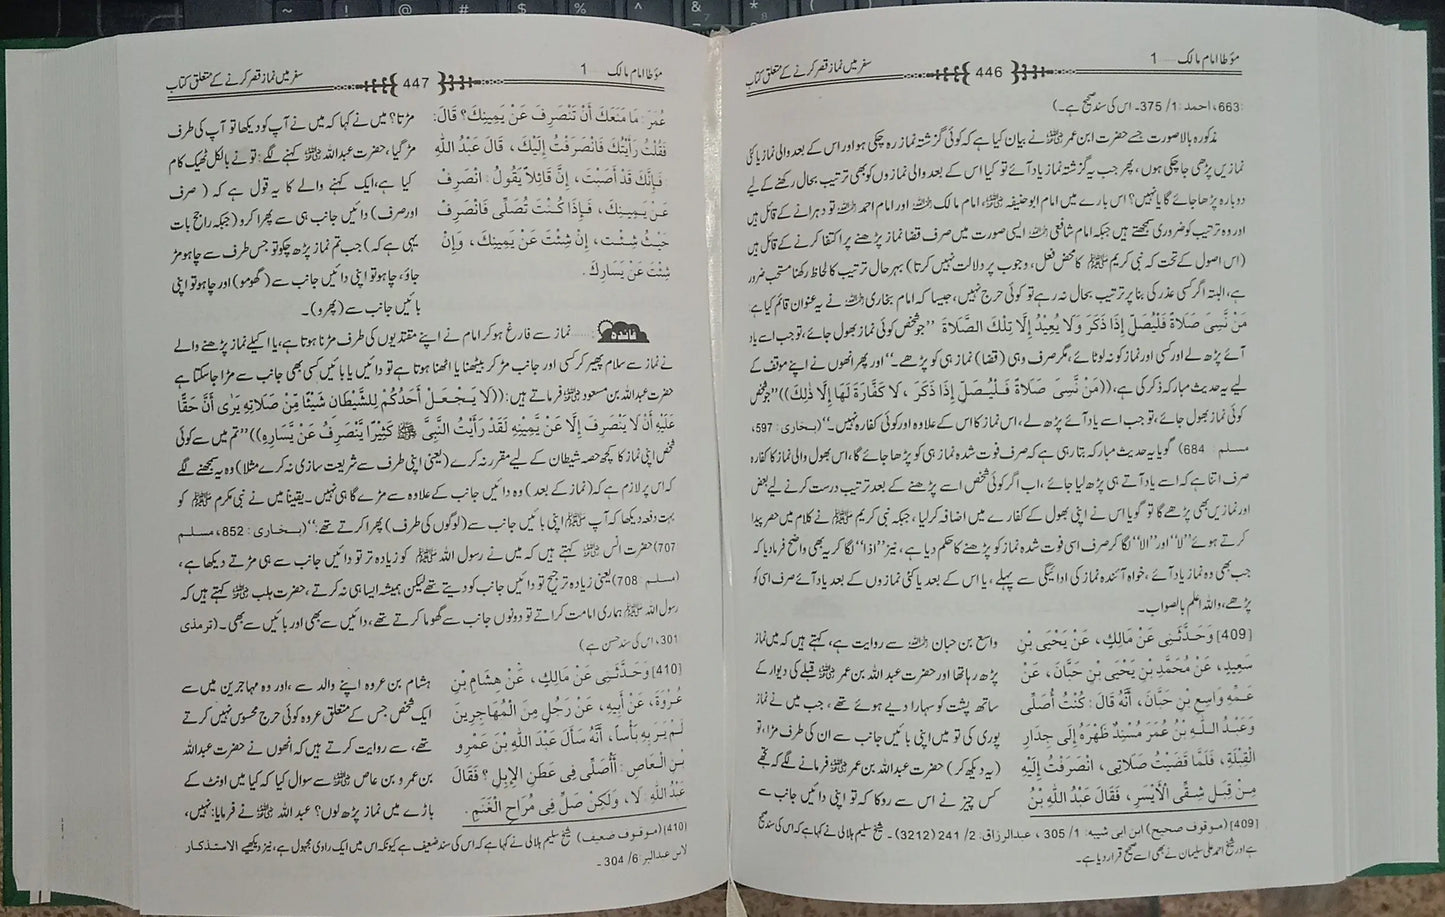 مؤطا امام مالک ..... 1
446
سفر میں نماز قصر کرنے کے متعلق کتاب
663، احمد: 1/ 375۔ اس کی سند صحیح ہے۔)
مذکورہ بالا صورت جسے حضرت ابن عمر نے بیان کیا ہے کہ کوئی گزشتہ نماز رہ چکی ہو اور اس کے بعد والی نماز یا کئی
نمازیں پڑھی جا چکی ہوں، پھر جب یہ گزشتہ نماز یاد آئے تو کیا اس کے بعد والی نمازوں کو بھی ترتیب بحال رکھنے کے لیے
دوبارہ پڑھا جائے گا یا نہیں؟ اس بارے میں امام ابو حنیفہ، امام مالک اور امام احمد تو دہرانے کے قائل ہیں
اور وہ ترتیب کو ضروری سمجھتے ہیں جبکہ امام شافعی ایسی صورت میں صرف قضا نماز پڑھنے پر اکتفا کرنے کے قائل ہیں
(اس اصول کے تحت کہ نبی کریم ﷺ کا محض فعل، وجوب پر دلالت نہیں کرتا) بہر حال ترتیب کا لحاظ رکھنا مستحب ضرور
ہے، البتہ اگر کسی عذر کی بنا پر ترتیب بحال نہ رہے تو کوئی حرج نہیں، جیسا کہ امام بخاری نے یہ عنوان قائم کیا ہے:
مَنْ نَّسِيَ صَلَاةً فَلْيُصَلِّ إِذَا ذَكَرَ وَلَا يُعِيدُ إِلَّا تِلْكَ الصَّلَاةَ ”جو شخص کوئی نماز بھول جائے، تو جب اسے یاد
آئے پڑھ لے اور کسی اور نماز کو نہ لوٹائے، مگر صرف وہی (قضا) نماز ہی کو پڑھے۔“ اور پھر انھوں نے اپنے موقف کے
لیے یہ حدیث مبارکہ ذکر کی ہے، ((مَنْ نَّسِيَ صَلَاةً فَلْيُصَلِّ إِذَا ذَكَرَ، لَا كَفَّارَةَ لَهَا إِلَّا ذٰلِكَ)) ”جو شخص
کوئی نماز بھول جائے، تو جب اسے یاد آئے پڑھ لے، اس نماز کا اس کے علاوہ اور کوئی کفارہ نہیں۔“ (بخاری: 597،
مسلم: 684) گویا یہ حدیث مبارکہ بتا رہی ہے کہ صرف فوت شدہ نماز ہی کو پڑھا جائے گا، اس بھول والی نماز کا کفارہ
صرف اتنا ہے کہ اسے یاد آتے ہی پڑھ لیا جائے، اب اگر کوئی شخص اسے پڑھنے کے بعد ترتیب درست کرنے کے لیے بعض
اور نمازیں بھی پڑھے گا تو گویا اس نے اپنی بھول کے کفارے میں اضافہ کر لیا، جبکہ نبی کریم ﷺ نے کلام میں حصر پیدا
کرتے ہوئے ”لا“ اور ”الا“ لگا کر صرف اسی فوت شدہ نماز کو پڑھنے کا حکم دیا ہے، نیز ”اذا“ لگا کر یہ بھی واضح فرما دیا کہ
جب بھی وہ نماز یاد آئے، خواہ آئندہ نماز کی ادائیگی سے پہلے، یا اس کے بعد یا کئی نمازوں کے بعد یاد آئے صرف اسی کو
پڑھے، واللہ اعلم بالصواب۔
[409] وَحَدَّثَنِي عَنْ مَالِكٍ، عَنْ يَحْيَى بْنِ
سَعِيدٍ، عَنْ مُحَمَّدِ بْنِ يَحْيَى بْنِ حَبَّانَ، عَنْ
عَمِّهِ وَاسِعِ بْنِ حَبَّانَ، أَنَّهُ قَالَ: كُنْتُ أُصَلِّي
وَعَبْدُ اللّٰهِ بْنُ عُمَرَ مُسْنِدٌ ظَهْرَهُ إِلَى جِدَارِ
الْقِبْلَةِ، فَلَمَّا قَضَيْتُ صَلَاتِي، انْصَرَفْتُ إِلَيْهِ
مِنْ قِبَلِ شِقِّي الْأَيْسَرِ، فَقَالَ عَبْدُ اللّٰهِ بْنُ
واسع بن حبان سے روایت ہے، کہتے ہیں کہ میں نماز
پڑھ رہا تھا اور حضرت عبد اللہ بن عمر قبلے کی دیوار کے
ساتھ پشت کو سہارا دیے ہوئے تھے، جب میں نے نماز
پوری کی تو میں اپنی بائیں جانب سے ان کی طرف مڑا، تو
(یہ دیکھ کر) حضرت عبد اللہ بن عمر فرمانے لگے کہ تجھے
کس چیز نے اس سے روکا کہ تو اپنی دائیں جانب سے
[409] (موقوف صحیح) ابن ابی شیبہ: 1/ 305، عبدالرزاق: 2/ 241 (3212)۔ شیخ سلیم ہلالی نے کہا ہے کہ اس کی سند صحیح
ہے اور شیخ احمد علی سلیمان نے بھی اسے صحیح قرار دیا ہے۔
مؤطا امام مالک ..... 1
447
سفر میں نماز قصر کرنے کے متعلق کتاب
عُمَرَ: مَا مَنَعَكَ أَنْ تَنْصَرِفَ عَنْ يَمِينِكَ؟ قَالَ:
فَقُلْتُ رَأَيْتُكَ فَانْصَرَفْتُ إِلَيْكَ، قَالَ عَبْدُ اللّٰهِ
فَإِنَّكَ قَدْ أَصَبْتَ، إِنَّ قَائِلًا يَقُولُ: انْصَرِفْ
عَنْ يَمِينِكَ، فَإِذَا كُنْتَ تُصَلِّي فَانْصَرِفْ
حَيْثُ شِئْتَ، إِنْ شِئْتَ عَنْ يَمِينِكَ، وَإِنْ
شِئْتَ عَنْ يَسَارِكَ.
مڑتا؟ میں نے کہا کہ میں نے آپ کو دیکھا تو آپ کی طرف
مڑ گیا، حضرت عبد اللہ کہنے لگے: تو نے بالکل ٹھیک کام
کیا ہے، ایک کہنے والے کا یہ قول ہے کہ (صرف
اور صرف) دائیں جانب ہی سے پھرا کرو (جبکہ راجح بات
یہی ہے کہ) جب تم نماز پڑھ چکو تو جس طرف سے چاہو مڑ
جاؤ، چاہو تو اپنی دائیں جانب سے (گھومو) اور چاہو تو اپنی
بائیں جانب سے (پھرو)۔
فائدہ ..... نماز سے فارغ ہو کر امام نے اپنے مقتدیوں کی طرف مڑنا ہوتا ہے، یا اکیلے نماز پڑھنے والے
نے نماز سے سلام پھیر کر کسی اور جانب مڑ کر بیٹھنا یا اٹھنا ہوتا ہے تو دائیں یا بائیں کسی بھی جانب سے مڑا جا سکتا ہے
حضرت عبد اللہ بن مسعود فرماتے ہیں: ((لَا يَجْعَلْ أَحَدُكُمْ لِلشَّيْطَانِ شَيْئًا مِّنْ صَلَاتِهِ يَرٰى أَنَّ حَقًّا
عَلَيْهِ أَنْ لَا يَنْصَرِفَ إِلَّا عَنْ يَّمِينِهِ لَقَدْ رَأَيْتُ النَّبِيَّ ﷺ كَثِيْرًا يَّنْصَرِفُ عَنْ يَّسَارِهِ)) ”تم میں سے کوئی
شخص اپنی نماز کا کچھ حصہ شیطان کے لیے مقرر نہ کرے (یعنی اپنی طرف سے شریعت سازی نہ کرے مثلا) وہ یہ سمجھنے لگے
کہ اس پر لازم ہے کہ (نماز کے بعد) وہ دائیں جانب کے علاوہ سے مڑے گا ہی نہیں۔ یقیناً میں نے نبی مکرم ﷺ کو
بہت دفعہ دیکھا کہ آپ ﷺ اپنی بائیں جانب سے (لوگوں کی طرف) پھرا کرتے تھے۔“ (بخاری: 852، مسلم:
707) حضرت انس کہتے ہیں کہ میں نے رسول اللہ ﷺ کو زیادہ تر تو دائیں جانب سے ہی مڑتے دیکھا ہے،
(مسلم 708) یعنی زیادہ ترجیح تو دائیں جانب کو دیتے تھے لیکن ہمیشہ ایسا ہی نہ کرتے، حضرت ہلب کہتے ہیں کہ
رسول اللہ ﷺ ہماری امامت کراتے تو دونوں جانب سے گھوما کرتے تھے، دائیں سے بھی اور بائیں سے بھی۔ (ترمذی
301، اس کی سند حسن ہے)
[410] وَحَدَّثَنِي عَنْ مَالِكٍ، عَنْ هِشَامِ بْنِ
عُرْوَةَ، عَنْ أَبِيهِ، عَنْ رَجُلٍ مِنَ الْمُهَاجِرِينَ
لَمْ يَرَ بِهِ بَأْسًا، أَنَّهُ سَأَلَ عَبْدَ اللّٰهِ بْنَ عَمْرِو
بْنِ الْعَاصِ: أَأُصَلِّي فِي عَطَنِ الْإِبِلِ؟ فَقَالَ
عَبْدُ اللّٰهِ: لَا، وَلٰكِنْ صَلِّ فِي مُرَاحِ الْغَنَمِ.
ہشام بن عروہ اپنے والد سے، اور وہ مہاجرین میں سے
ایک شخص جس کے متعلق عروہ کوئی حرج محسوس نہیں کرتے
تھے، سے روایت کرتے ہیں کہ انھوں نے حضرت عبد اللہ
بن عمرو بن عاص سے سوال کیا کہ کیا میں اونٹ کے
باڑے میں نماز پڑھ لوں؟ عبد اللہ نے فرمایا: نہیں،
[410] (موقوف ضعیف) شیخ سلیم ہلالی نے کہا ہے کہ اس کی سند ضعیف ہے کیونکہ اس میں ایک راوی مجہول ہے، نیز دیکھیے الاستذکار
لابن عبدالبر: 6/ 304۔